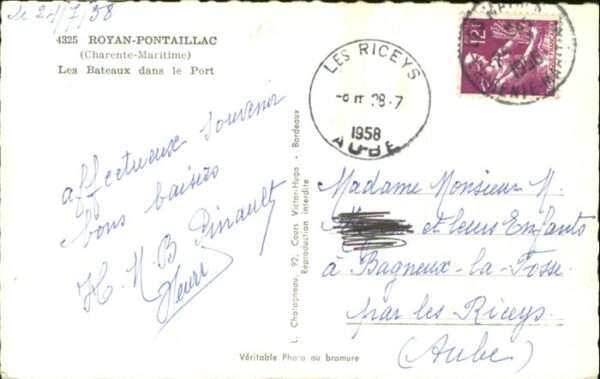 le 27/7/58
4325 ROYAN-PONTAILLAC
(Charente-Maritime)
Les Bateaux dans le Port
affectueux souvenir
bons baisers
H. M. B. Pinault
Henri
L. Chatagneau, 92, Cours Victor-Hugo - Bordeaux
Reproduction interdite
Véritable Photo au bromure
LES RICEYS
28-7
1958
AUBE
12F
1958
Madame Monsieur M.
et leurs Enfants
à Bagneux-la-Fosse
par les Riceys
(Aube)